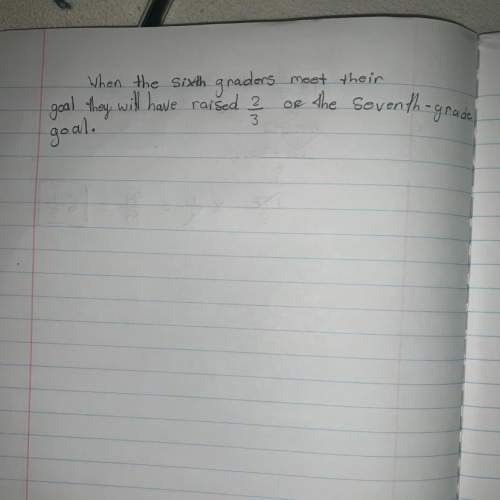 When the sixth graders meet their
goal they will have raised 2/3 of the seventh-grade
goal.